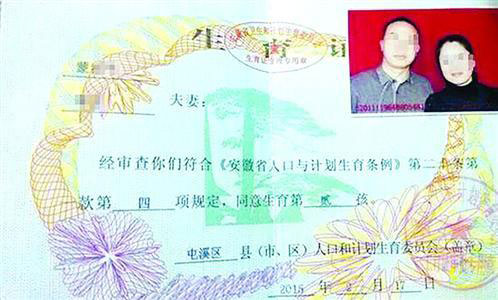 生育证
生育证专用章
蒙
夫妻：
经审查你们符合《安徽省人口与计划生育条例》第二十条第
款第 四 项规定，同意生育第 贰 孩。
屯溪区 县（市、区）人口和计划生育委员会（盖章）
2015 年 2 月 17 日